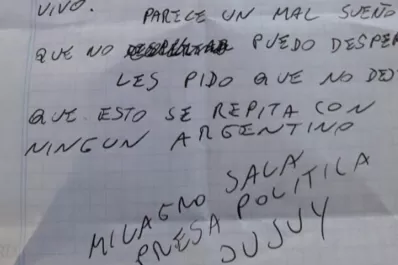 VIVO. PARECE UN MAL SUEÑO
QUE NO PUEDO DESPER
LES PIDO QUE NO DEJ
QUE ESTO SE REPITA CON
NINGUN ARGENTINO
MILAGRO SALA
PRESA POLITICA
JUJUY